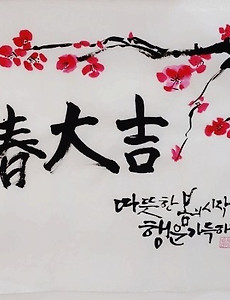 春大吉
따뜻한 봄의 시작
행운 가득하